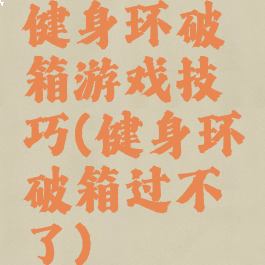 健身环破
箱游戏技
巧(健身环
破箱过不
了)